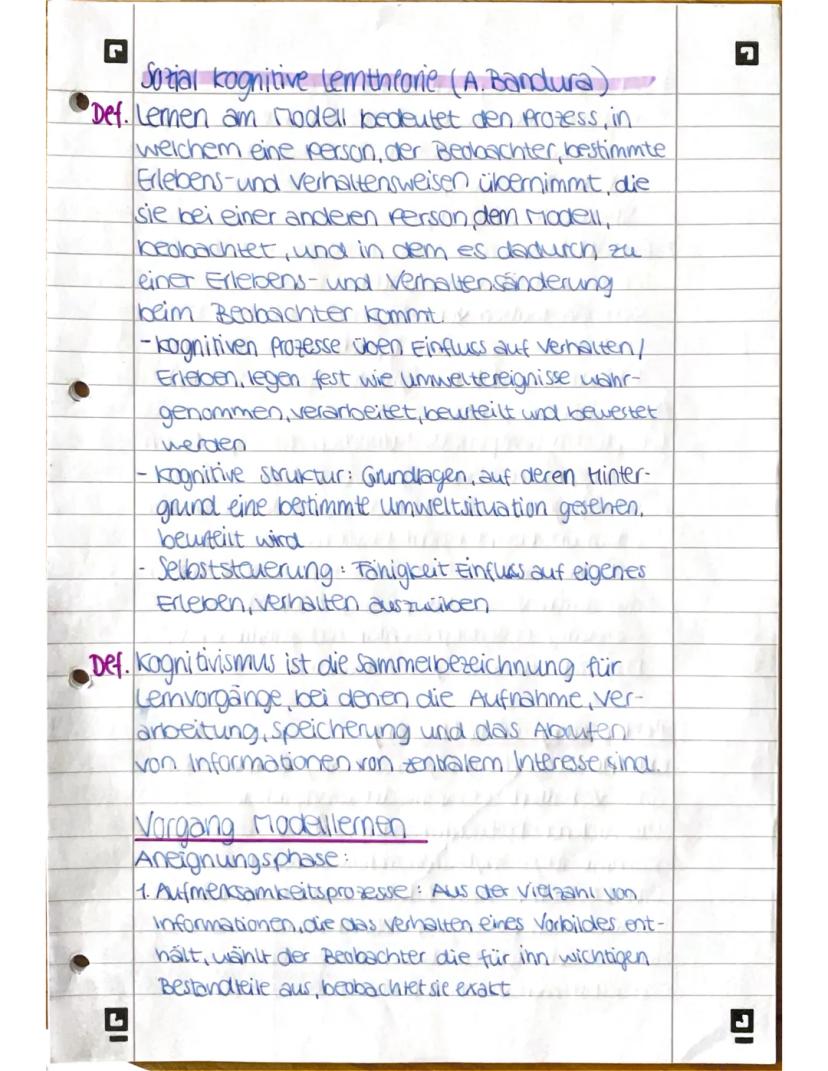 Sozial kognitive Lerntheorie (A. Bandura)
Def. Lernen am Modell bedeutet den Prozess, in
welchem eine Person, der Beobachter, bestimmte
Erlebens- und Verhaltensweisen übernimmt, die
sie bei einer anderen Person, dem Modell,
beobachtet, und in dem es dadurch zu
einer Erlebens- und Verhaltensänderung
beim Beobachter kommt.
- Kognitiven Prozesse üben Einfluss auf Verhalten/
Erleben, legen fest wie Umweltereignisse wahr-
genommen, verarbeitet, beurteilt und bewertet
werden
- Kognitive Struktur: Grundlagen, auf deren Hinter-
grund eine bestimmte Umweltsituation gesehen,
beurteilt wird
- Selbststeuerung: Fähigkeit Einfluss auf eigenes
Erleben, Verhalten auszuüben
Def. Kognitivismus ist die Sammelbezeichnung für
Lernvorgänge, bei denen die Aufnahme, Ver-
arbeitung, Speicherung und das Abrufen
von Informationen von zentralem Interesse sind.
Vorgang Modelllernen
Aneignungsphase:
1. Aufmerksamkeitsprozesse: Aus der Vielzahl von
Informationen, die das Verhalten eines Vorbildes ent-
hält, wählt der Beobachter die für ihn wichtigen
Bestandteile aus, beobachtet sie exakt